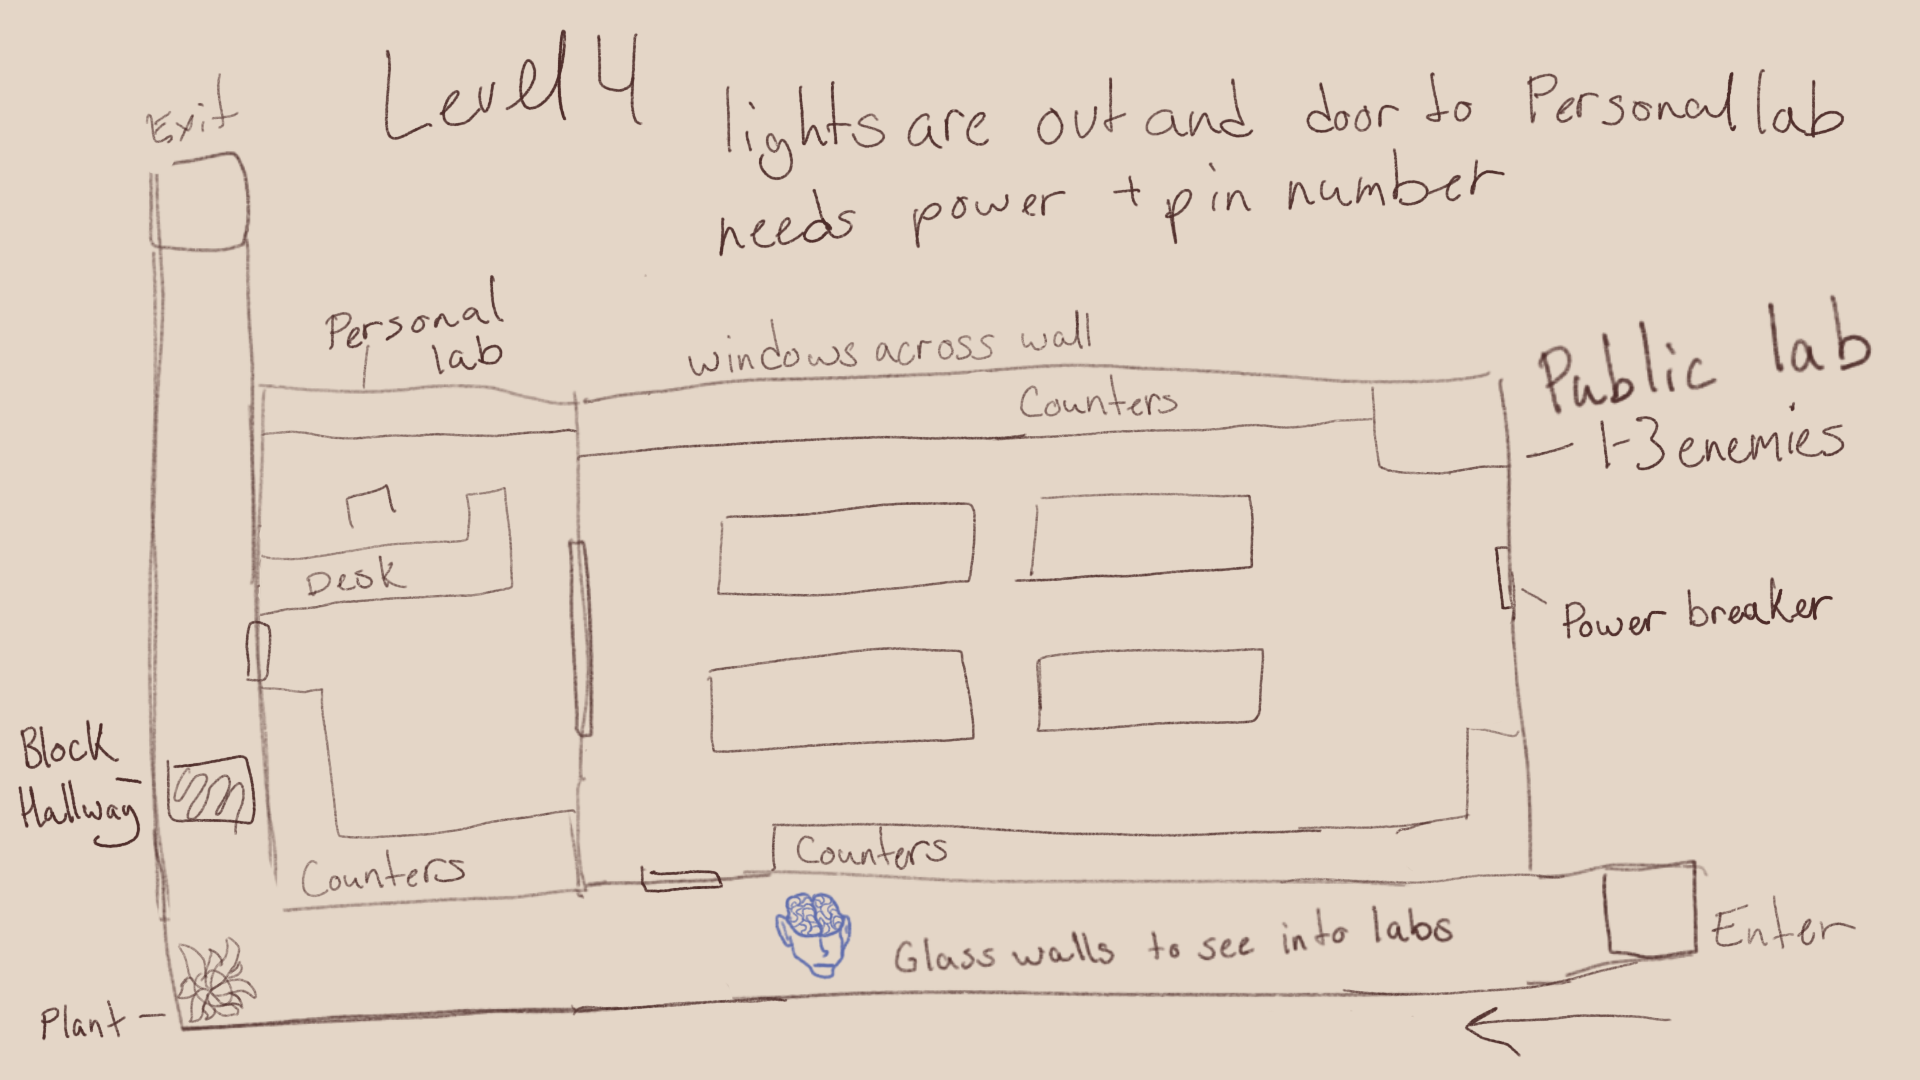 Level 4
lights are out and door to Personal lab
needs power + pin number
Exit
Personal
lab
windows across wall
Counters
Public lab
1-3 enemies
Desk
Power breaker
Block
Hallway
Counters
Counters
Glass walls to see into labs
Enter
Plant